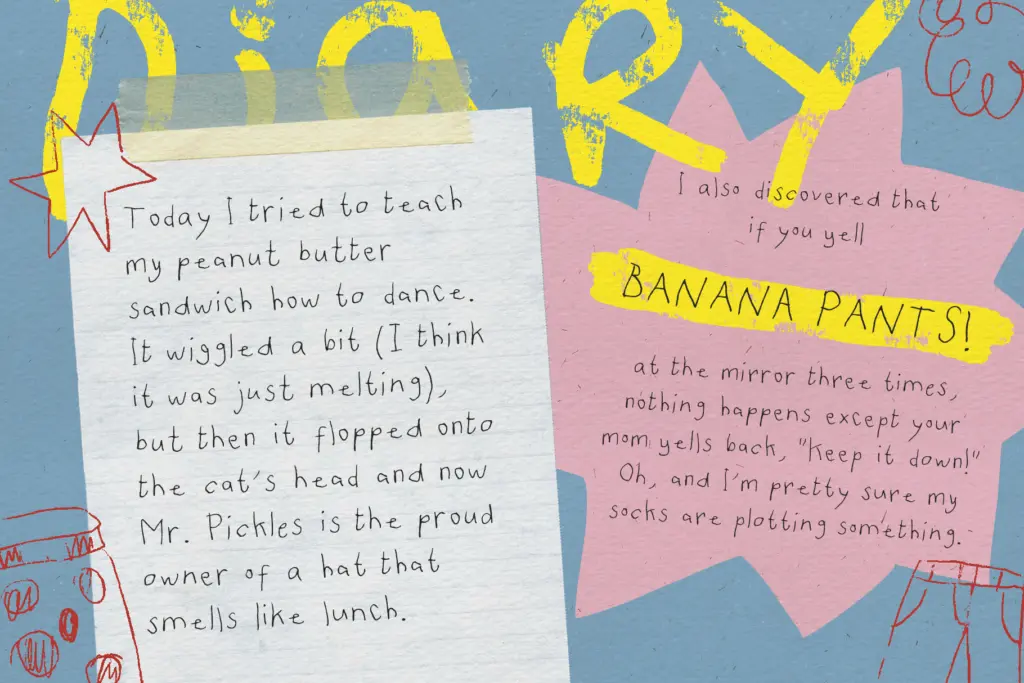 DiaRY
Today I tried to teach
my peanut butter
sandwich how to dance.
It wiggled a bit (I think
it was just melting),
but then it flopped onto
the cat's head and now
Mr. Pickles is the proud
owner of a hat that
smells like lunch.
I also discovered that
if you yell
BANANA PANTS!
at the mirror three times,
nothing happens except your
mom yells back, "Keep it down!"
Oh, and I'm pretty sure my
socks are plotting something.